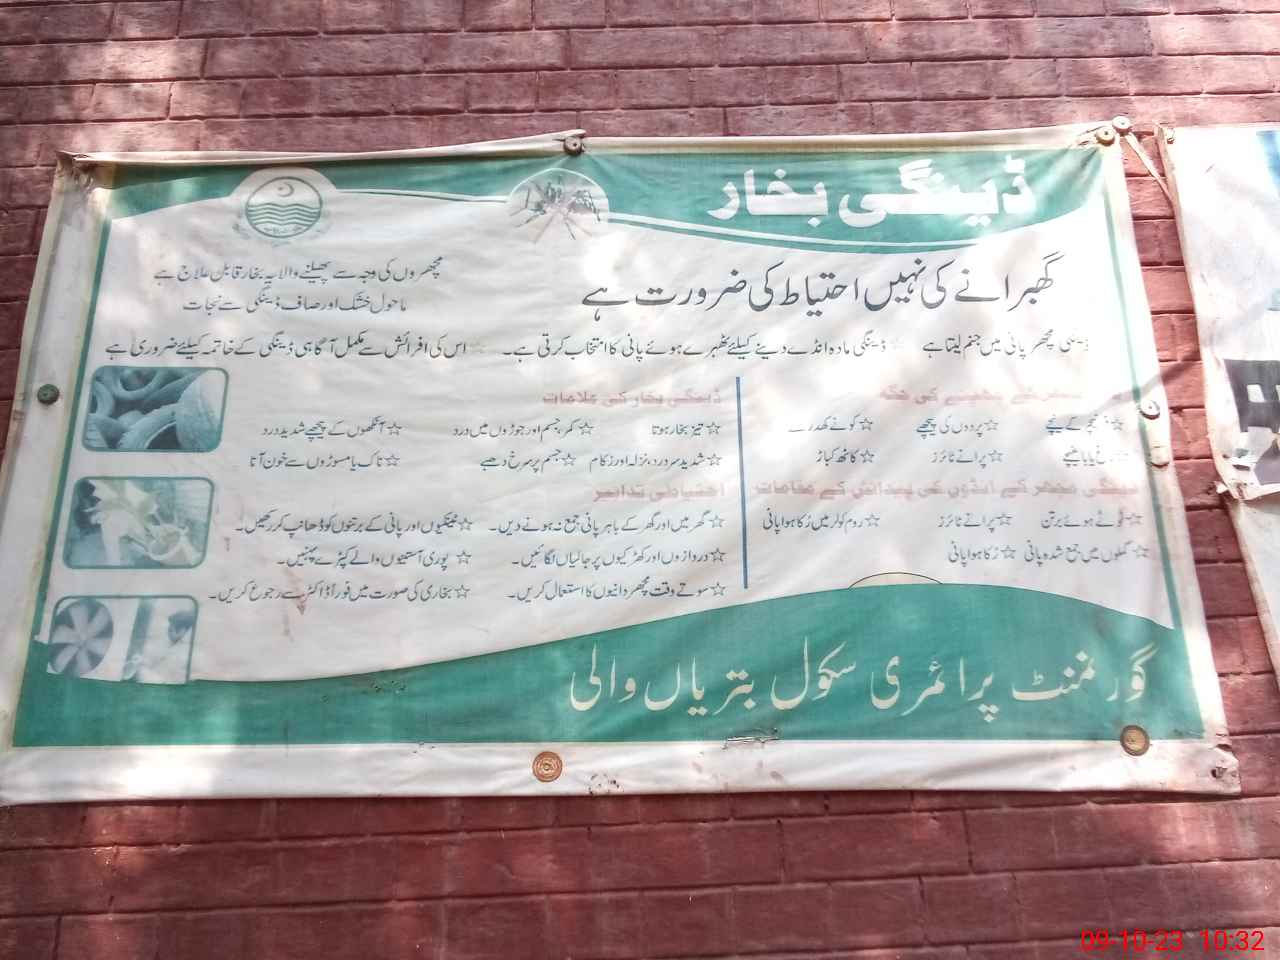 ڈینگی بخار
گھبرانے کی نہیں احتیاط کی ضرورت ہے
مچھروں کی وجہ سے پھیلنے والا یہ بخار قابل علاج ہے
ماحول خشک اور صاف ڈینگی سے نجات
مچھر پانی میں جنم لیتا ہے ☆ ڈینگی مادہ انڈے دینے کیلئے ٹھہرے ہوئے پانی کا انتخاب کرتی ہے۔ ☆ اس کی افزائش سے مکمل آگاہی ڈینگی کے خاتمہ کیلئے ضروری ہے
کے چھپنے کی جگہ
کے نیچے ☆ پردوں کے پیچھے ☆ کونے کھدرے
☆ پرانے ٹائرز ☆ کاٹھ کباڑ
ڈینگی مچھر کے انڈوں کی پیدائش کے مقامات
☆ ٹوٹے ہوئے برتن ☆ پرانے ٹائرز ☆ روم کولر میں رُکا ہوا پانی
☆ گملوں میں جمع شدہ پانی ☆ رُکا ہوا پانی
ڈینگی بخار کی علامات
☆ تیز بخار ہونا ☆ کمر، جسم اور جوڑوں میں درد ☆ آنکھوں کے پیچھے شدید درد
☆ شدید سر درد، نزلہ اور زکام ☆ جسم پر سرخ دھبے ☆ ناک یا مسوڑوں سے خون آنا
احتیاطی تدابیر
☆ گھر میں اور گھر کے باہر پانی جمع نہ ہونے دیں۔ ☆ ٹینکیوں اور پانی کے برتنوں کو ڈھانپ کر رکھیں۔
☆ دروازوں اور کھڑکیوں پر جالیاں لگائیں۔ ☆ پوری آستینوں والے کپڑے پہنیں۔
☆ سوتے وقت مچھر دانیوں کا استعمال کریں۔ ☆ بخاری کی صورت میں فوراً ڈاکٹر سے رجوع کریں۔
گورنمنٹ پرائمری سکول بتریاں والی
09-10-23 10:32